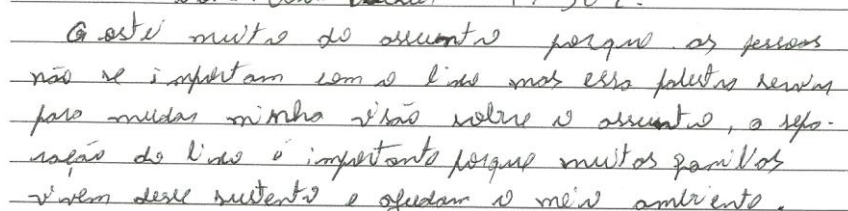 Gostei muito do assunto porque as pessoas
não se importam com o lixo mas essa palestra serviu
para mudar minha visão sobre o assunto, a sepa-
ração do lixo é importante porque muitas famílias
vivem desse sustento e ajudam o meio ambiente.